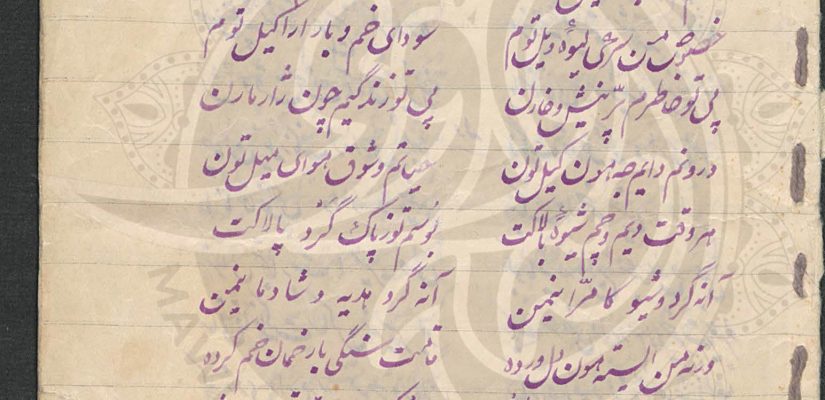 خصوص من سرحی لیوهٔ ویل توم سودای خم و بار اراکیل توم
بی تو خاطرم پر نیش و خارن بی تو زندگیم چون ژار مارن
درونم دایم جه هون کیل تون حیاتم و شوق هوای میل تون
هر وقت دیم و چم شیوهٔ بالاکت بوسم توز پاک گرد پالاکت
آنه گرد و شیو کامرا نیمن آنه گرد هدیه و شادمانیمن
ورنه من السته هون دل ورده قامت سنگی بار خمان خم کرده
MAW